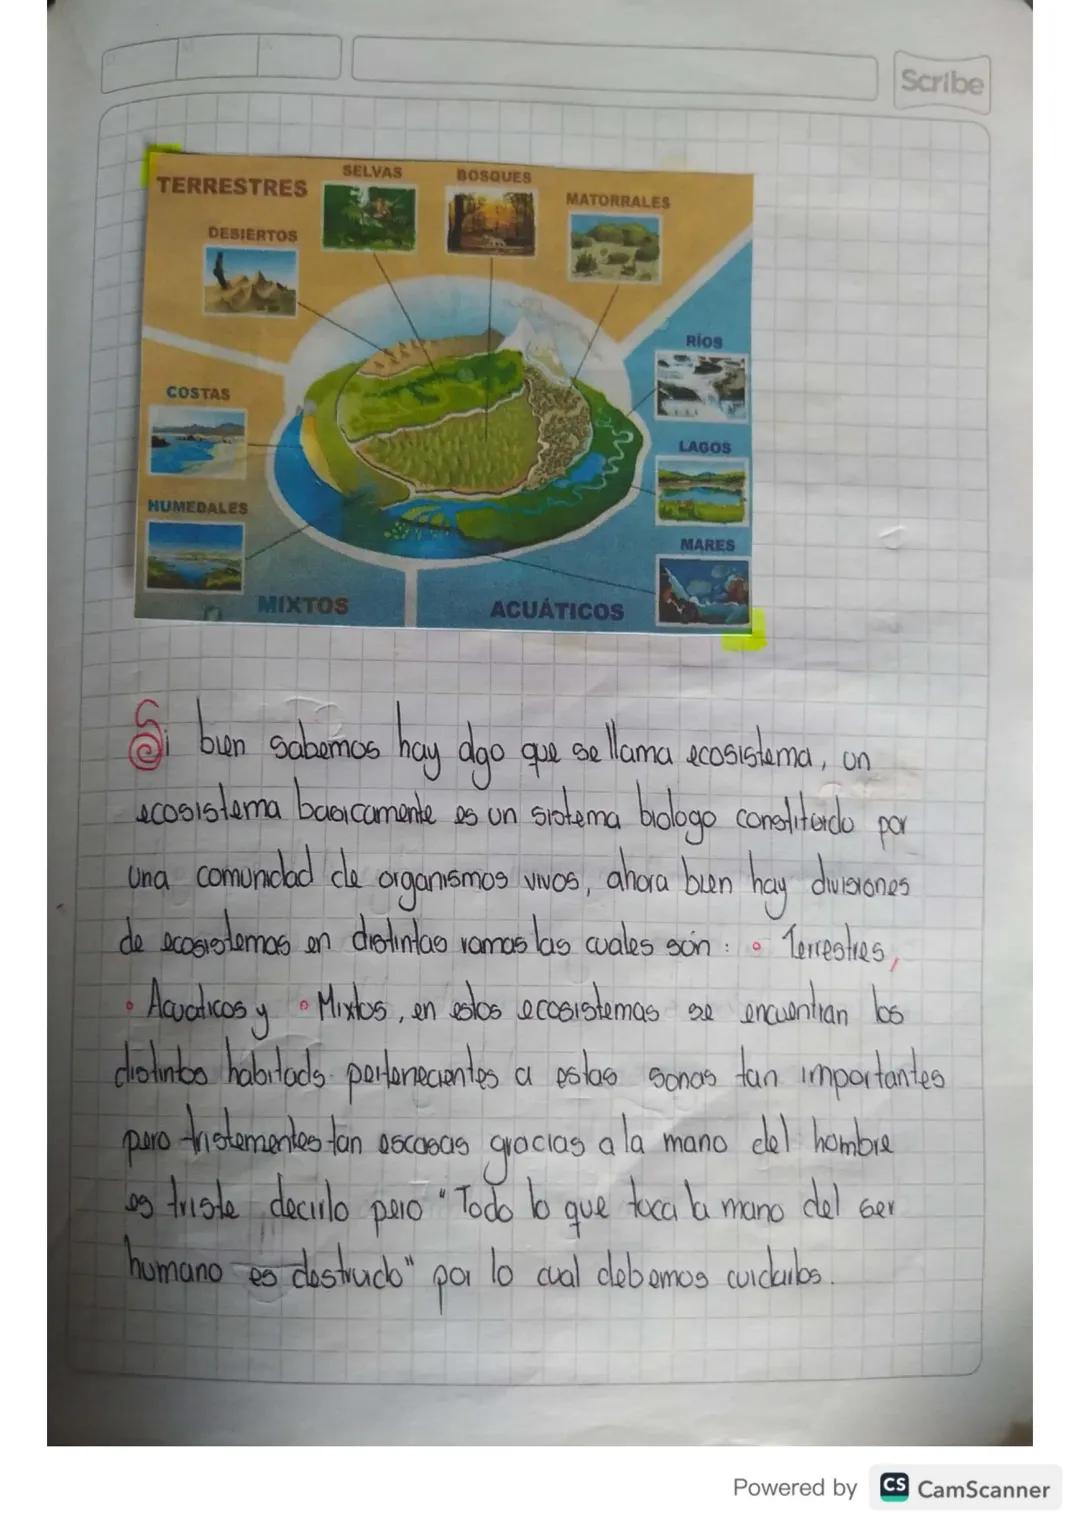 Scribe
TERRESTRES
SELVAS
BOSQUES
MATORRALES
DESIERTOS
RÍOS
COSTAS
LAGOS
HUMEDALES
MARES
MIXTOS
ACUÁTICOS
Si bien sabemos hay algo que se llama ecosistema, un
ecosistema basicamente es un sistema biologo constituido por
una comunidad de organismos vivos, ahora bien hay divisiones
de ecosistemas en distintas ramas las cuales són: • Terrestres,
• Acuaticos y • Mixtos, en estos ecosistemas se encuentran los
distintos habitads pertenecientes a estas sonas tan importantes
pero tristementes tan escasas gracias a la mano del hombre
es triste decirlo pero "Todo lo que toca la mano del ser
humano es destruido" por lo cual debemos cuidarlos.
Powered by CS CamScanner